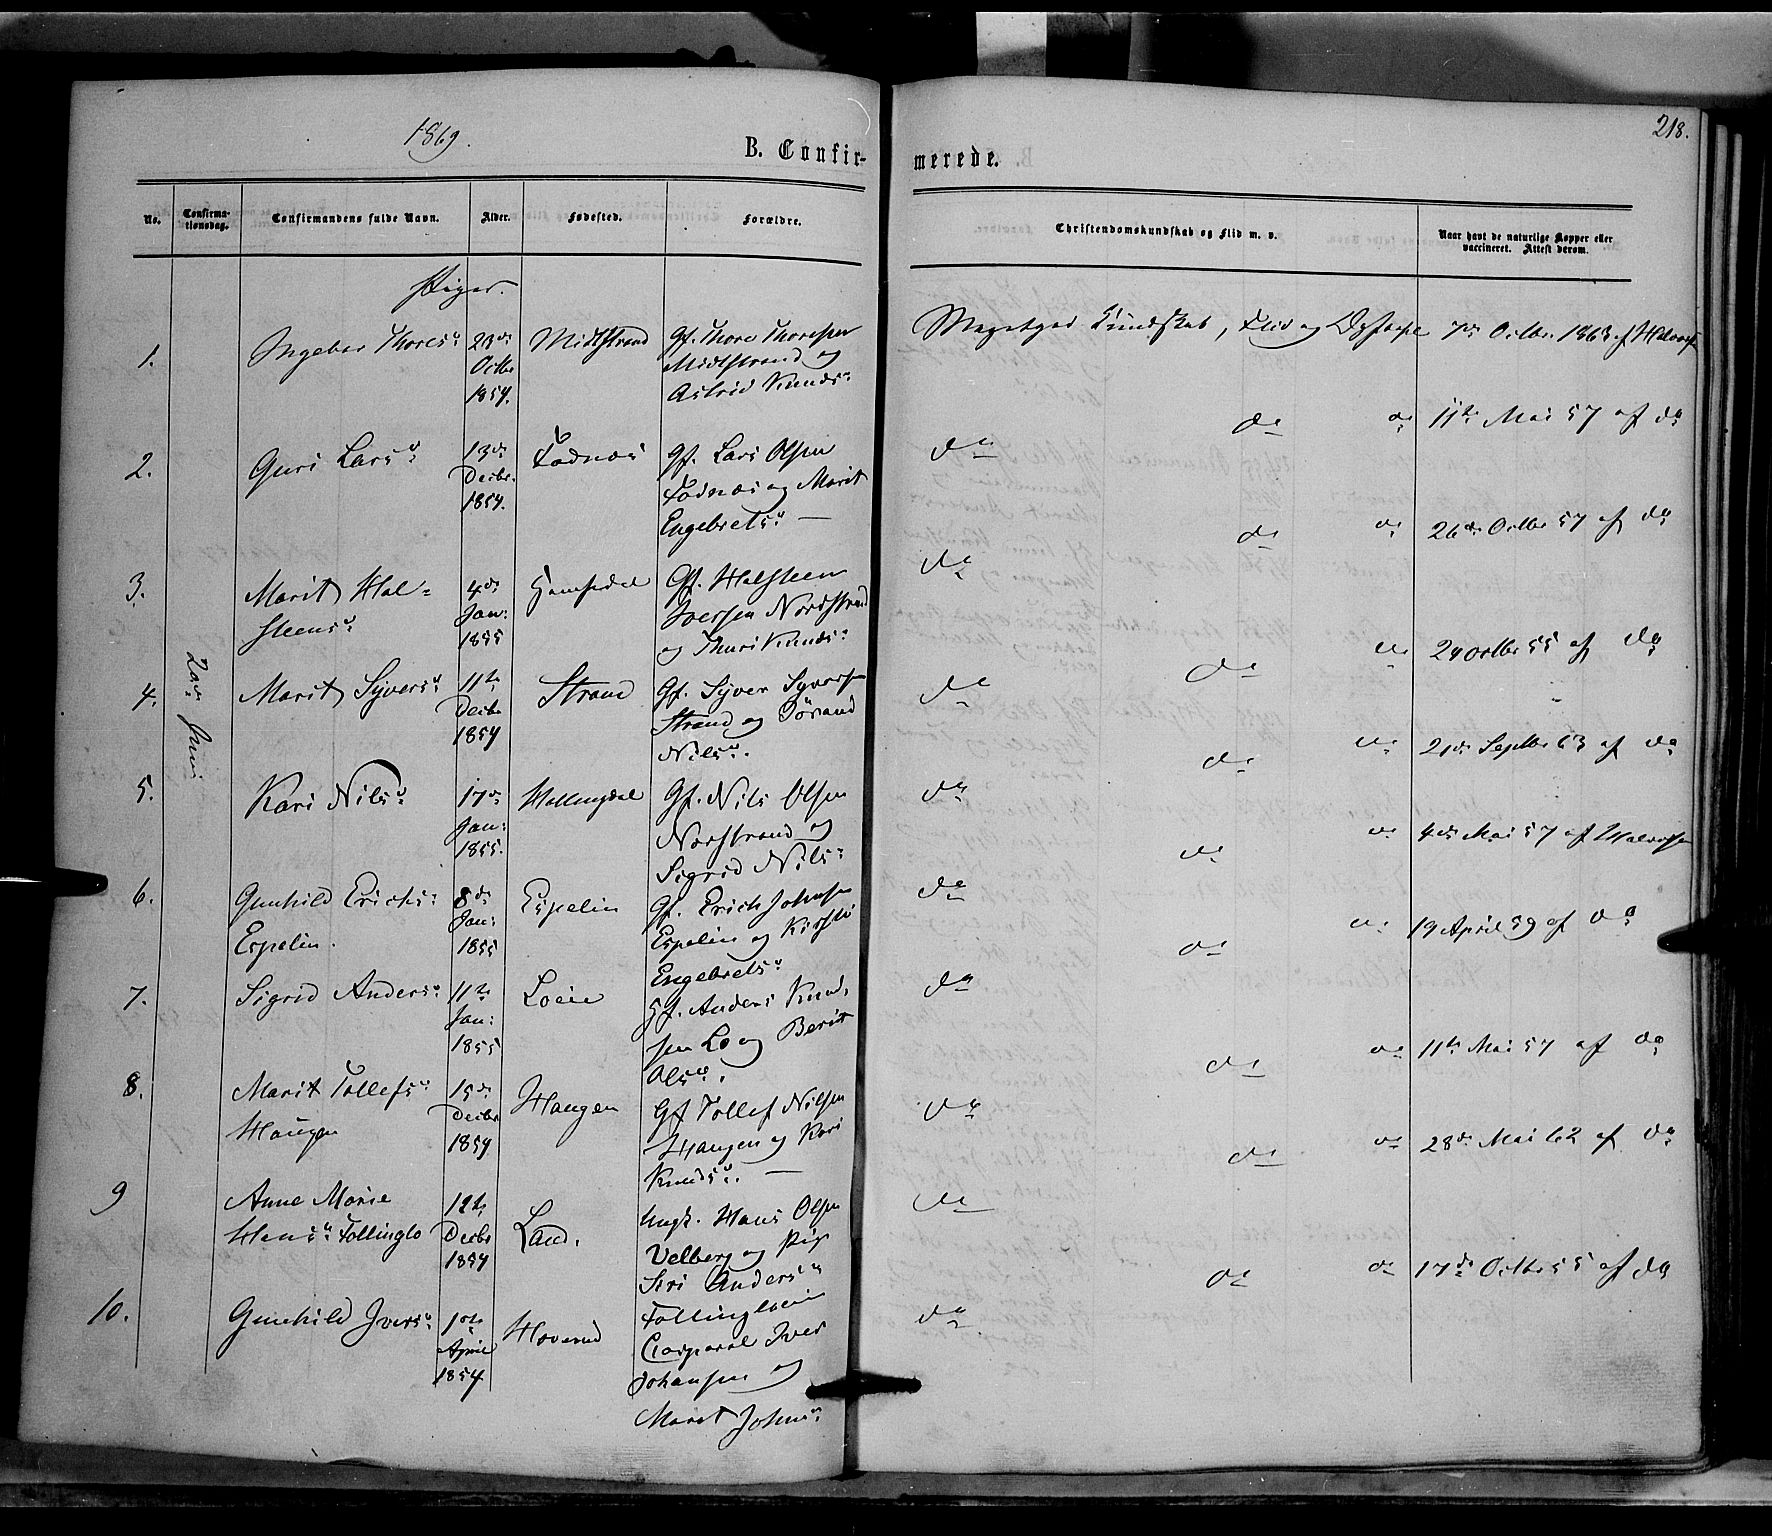 1869.
218.
B. Confir-
merede.
No.
Confirma-
tionsdag.
Confirmandens fulde Navn.
Alder.
Fødested.
Forældre.
Christendomskundskab og Flid m. v.
Naar havt de naturlige Kopper eller
vaccineret. Attest derom.
Piger.
20de Juni
1.
Ingebor Thoresd:
23de
Octbr
1854.
Midtstrand
Gf. Thore Thoresen
Midtstrand og
Astrid Knudsd:
Megetgod Kundskab, Flid og Opførsel
7de Octbr. 1863 af Halvorsen
2.
Guri Larsd:
13de
Decbr.
1854.
Fodnes
Gf. Lars Olsen
Fodnes og Marit
Engebretsd: —
do do do
11te Mai 57 af do
3.
Marit Hal-
steensd:
4de
Jan:
1855
Hemsedal
Gf. Halsteen
Iversen Nordstrand
og Thuri Knudsd:
do do do
26de Octbr 57 af do
4.
Marit Syversd:
11te
Decbr
1854
Strand
Gf. Syver Syversen
Strand og Jørand
Nilsd:
do do do
24 Octbr 55 af do
5.
Kari Nilsd:
17de
Jan:
1855.
Hallingdal
Gf. Nils Olsen
Norstrand og
Sigrid Nilsd:
do do do
21de Septbr 63 af do
6.
Gunhild Erichsd:
Espelin.
8de
Jan:
1855
Espelin
Gf. Erich Johnsen
Espelin og Kirsti
Engebretsd:
do do do
4de Mai 57 af Halvorsen
7.
Sigrid Andersd:
11te
Jan:
1855
Loeie
Gf. Anders Knud-
sen Lo og Berit
Olsd:
do do do
19 April 59 af do
8.
Marit Tollefsd:
Haugen
15de
Decbr
1854
Haugen
Gf Tollef Nilsen
Haugen og Kari
Knudsd: —
do do do
11te Mai 57 af do
9
Anne Marie
Hansd: Follinglo
12te
Decbr
1854
Land.
Ungk. Hans Olsen
Velberg og Pige
Siri Andersd:
Follingloeie
do do do
28de Mai 62 af do
10.
Gunhild Iversd:
1ste
April
1854
Hoverud
Corporal Iver
Johansen og
Marit Johnsd:
do do do
17de Octbr 55 af do